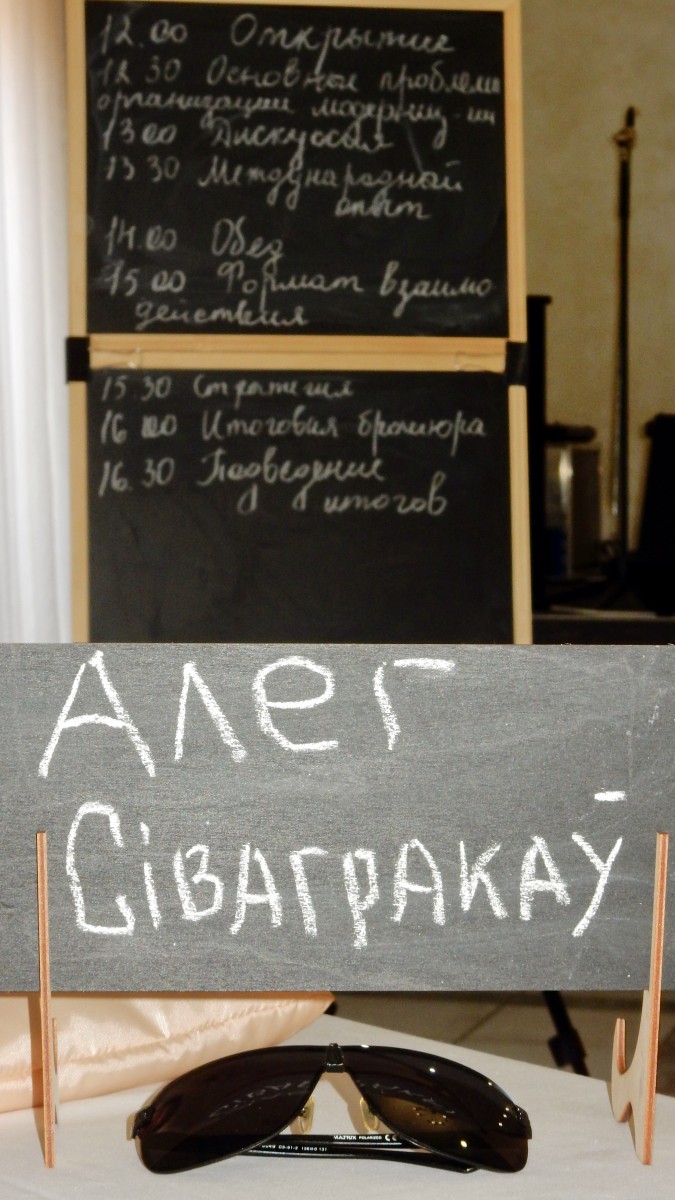 12.00 Открытие
12 30 Основные проблемы
организации модерниз-ии
13 00 Дискуссия
13 30 Международный
опыт
14.00 Обед
15 00 Формат взаимо
действия
15.30 Стратегия
16 00 Итоговая брошюра
16.30 Подведение
итогов
Алег
Сівагракаў
POLARIZED CE